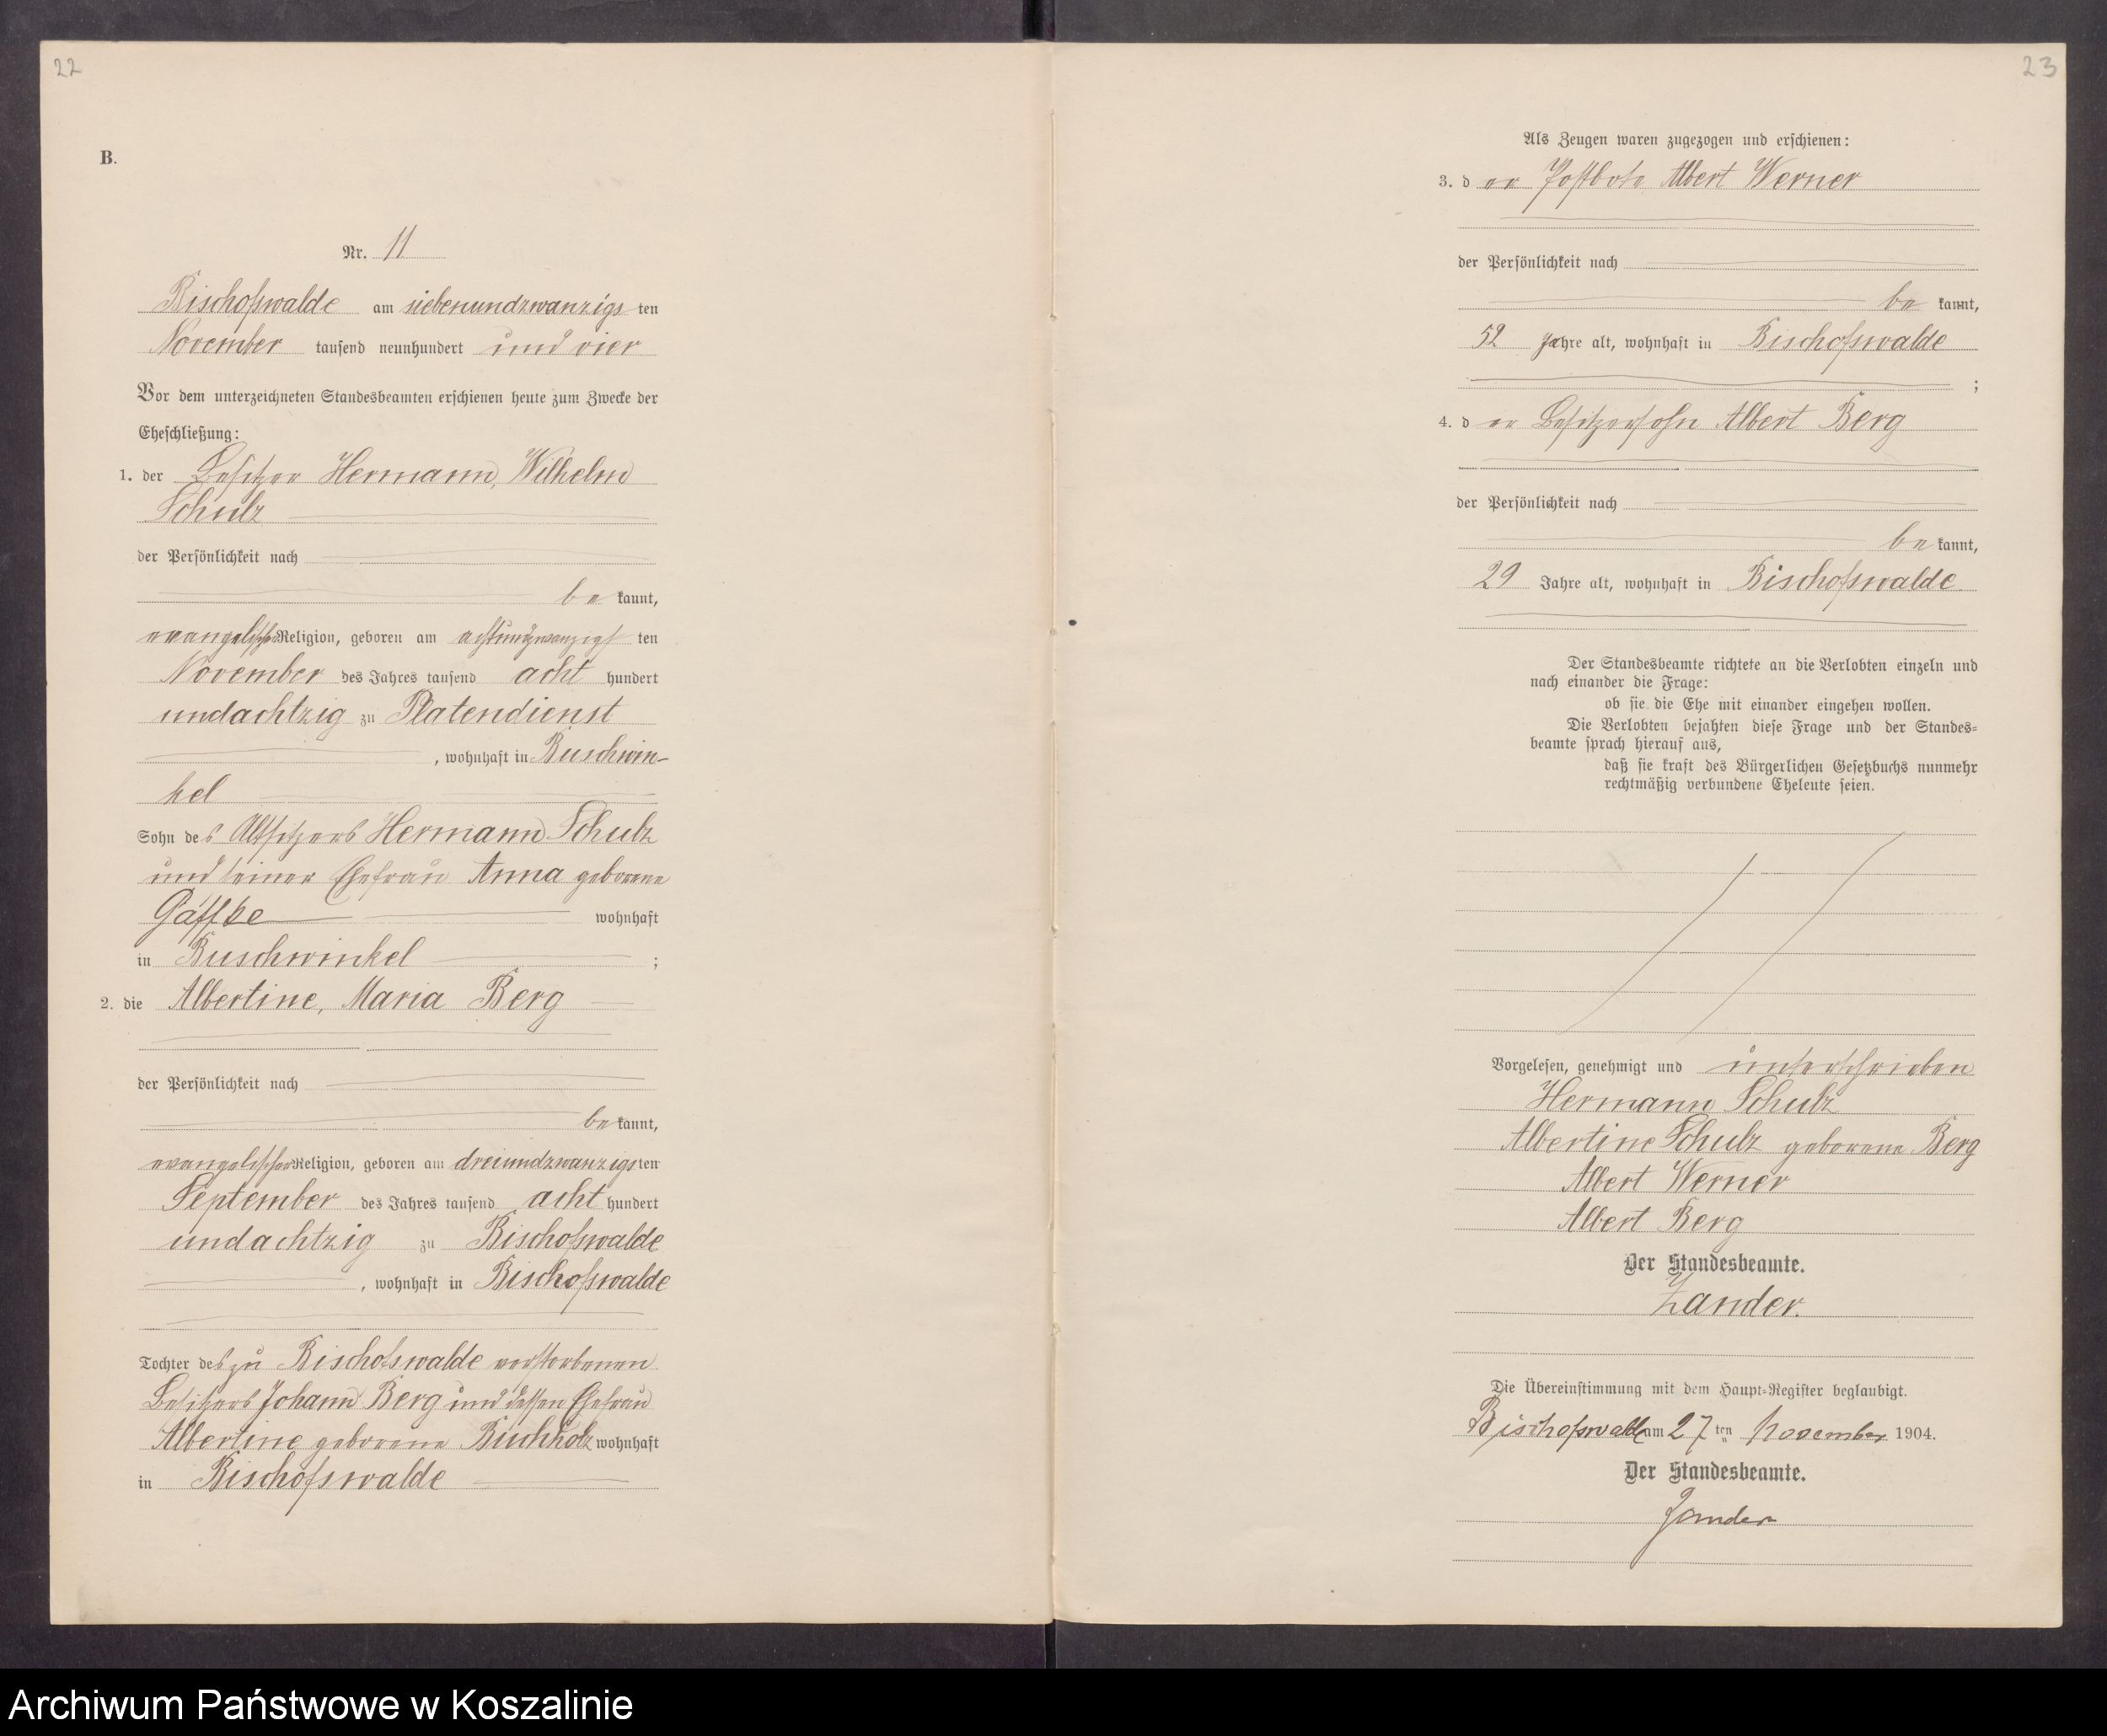 22
B.
Nr. 11
Bischofswalde am siebenundzwanzigs ten
November tausend neunhundert und vier
Vor dem unterzeichneten Standesbeamten erschienen heute zum Zwecke der
Eheschließung:
1. der Besitzer Hermann, Wilhelm
Schulz
der Persönlichkeit nach
be kannt,
evangelischer Religion, geboren am achtundzwanzigs ten
November des Jahres tausend acht hundert
undachtzig zu Platendienst
, wohnhaft in Buschwin-
kel
Sohn des Altsitzers Hermann Schulz
und seiner Ehefrau Anna geborene
Gäffke wohnhaft
in Buschwinkel ;
2. die Albertine, Maria Berg
der Persönlichkeit nach
be kannt,
evangelischer Religion, geboren am dreiundzwanzigsten
September des Jahres tausend acht hundert
undachtzig zu Bischofswalde
, wohnhaft in Bischofswalde
Tochter des zu Bischofswalde verstorbenen
Besitzers Johann Berg und dessen Ehefrau
Albertine geborene Buchholz wohnhaft
in Bischofswalde
23
Als Zeugen waren zugezogen und erschienen:
3. d er Postbote Albert Werner
der Persönlichkeit nach
be kannt,
52 Jahre alt, wohnhaft in Bischofswalde
;
4. d er Besitzersohn Albert Berg
der Persönlichkeit nach
be kannt,
29 Jahre alt, wohnhaft in Bischofswalde
Der Standesbeamte richtete an die Verlobten einzeln und
nach einander die Frage:
ob sie die Ehe mit einander eingehen wollen.
Die Verlobten bejahten diese Frage und der Standes=
beamte sprach hierauf aus,
daß sie kraft des Bürgerlichen Gesetzbuchs nunmehr
rechtmäßig verbundene Eheleute seien.
Vorgelesen, genehmigt und unterschrieben
Hermann Schulz
Albertine Schulz geborene Berg
Albert Werner
Albert Berg
Der Standesbeamte.
Zander.
Die Übereinstimmung mit dem Haupt=Register beglaubigt.
Bischofswalde am 27 ten November 1904.
Der Standesbeamte.
Zander
Archiwum Państwowe w Koszalinie